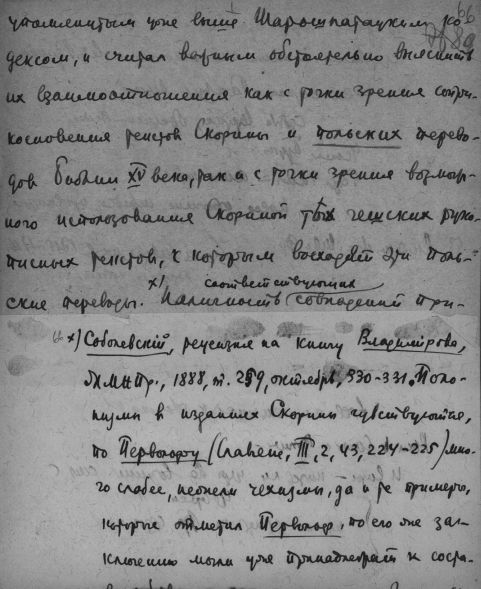 66
89
упомянутым уже выше Шарошпатацким ко-
дексом, и считал важным обстоятельно выяснить
их взаимоотношения как с точки зрения сопри-
косновения текстов Скорины и польских перево-
дов Библии XV века, так и с точки зрения возмож-
ного использования Скориной тех чешских руко-
писных текстов, к которым восходят эти поль-
ские переводы. x) Наличность соответствующих совпадений при-
x) Соболевский, рецензия на книгу Владимирова,
ЖМНПр., 1888, т. 259, октябрь, 330-331. Поло-
низмы в изданиях Скорины чувствуются,
по Первольфу (Славяне, III, 2, 43, 224-225) мно-
го слабее, нежели чехизмы, да и те примеры,
которые отметил Первольф, по его же зак-
лючению могли уже принадлежать к